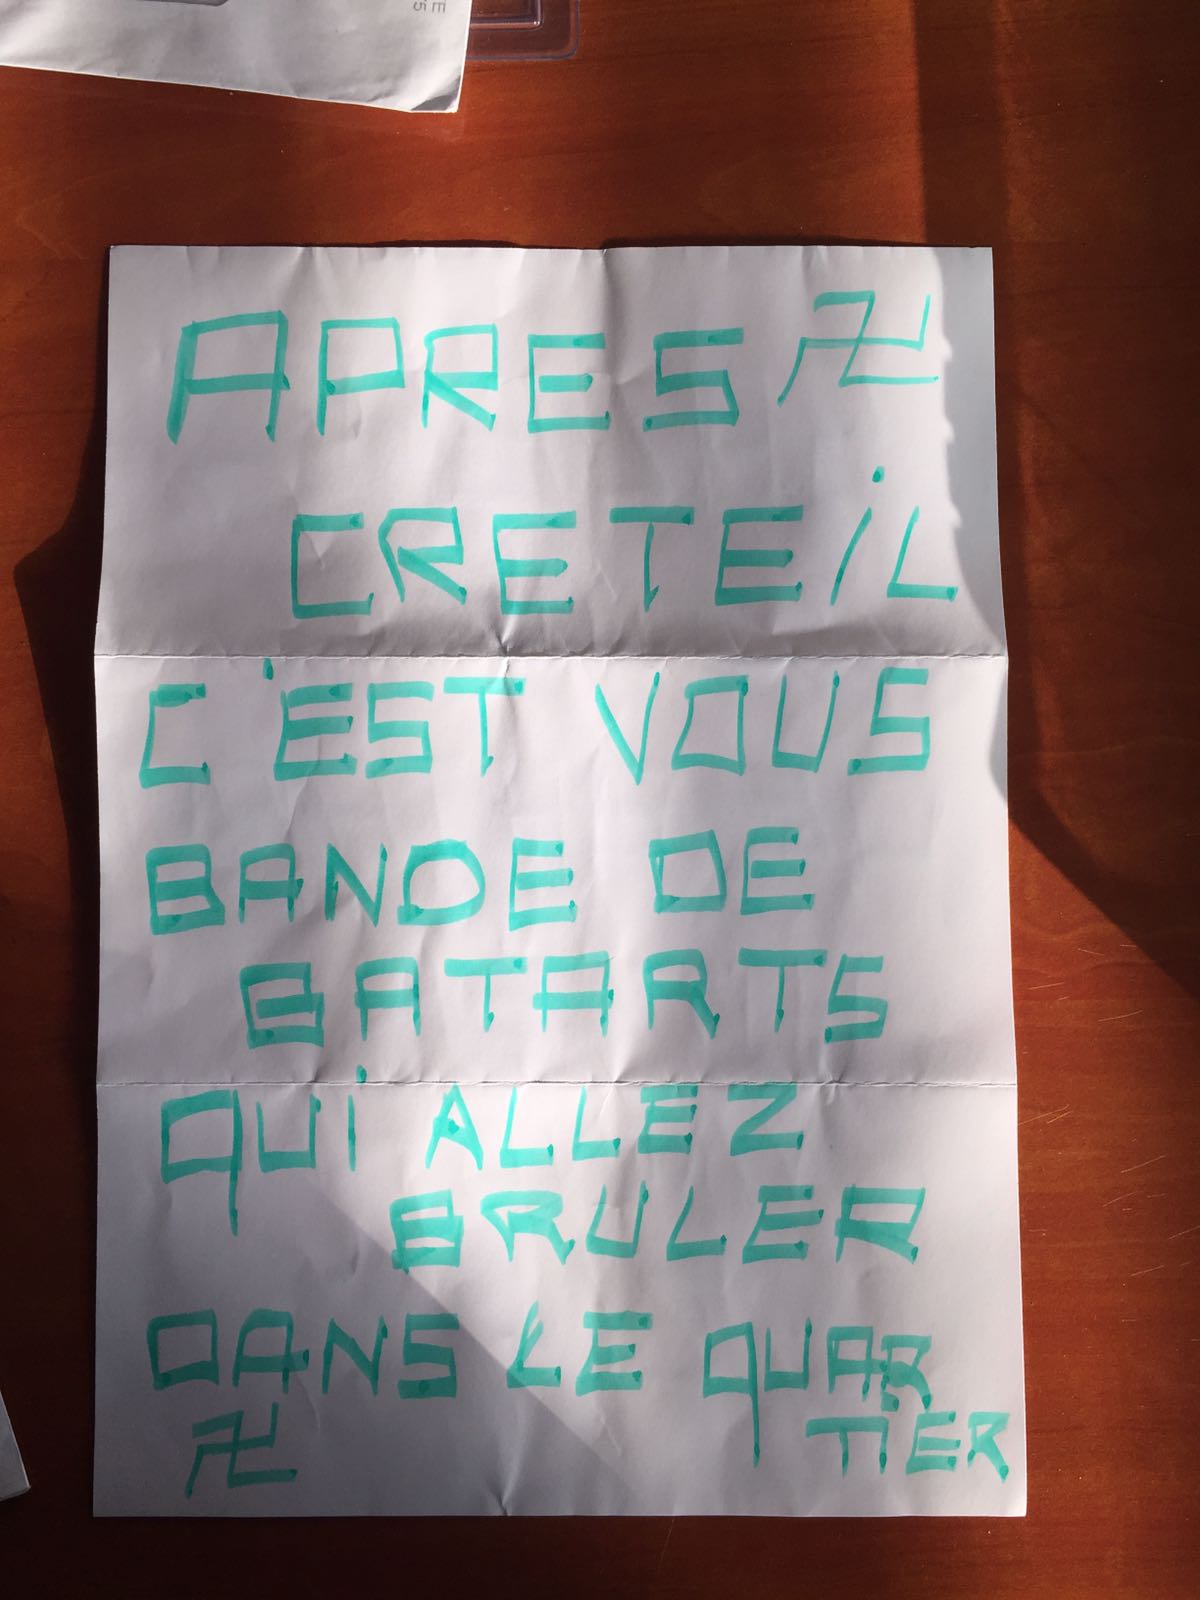 E
E5
APRES 卍
CRETEiL
C'EST VOUS
BANDE DE
BATARTS
qUi ALLEZ
BRULER
DANS LE qUAR
TiER
卍